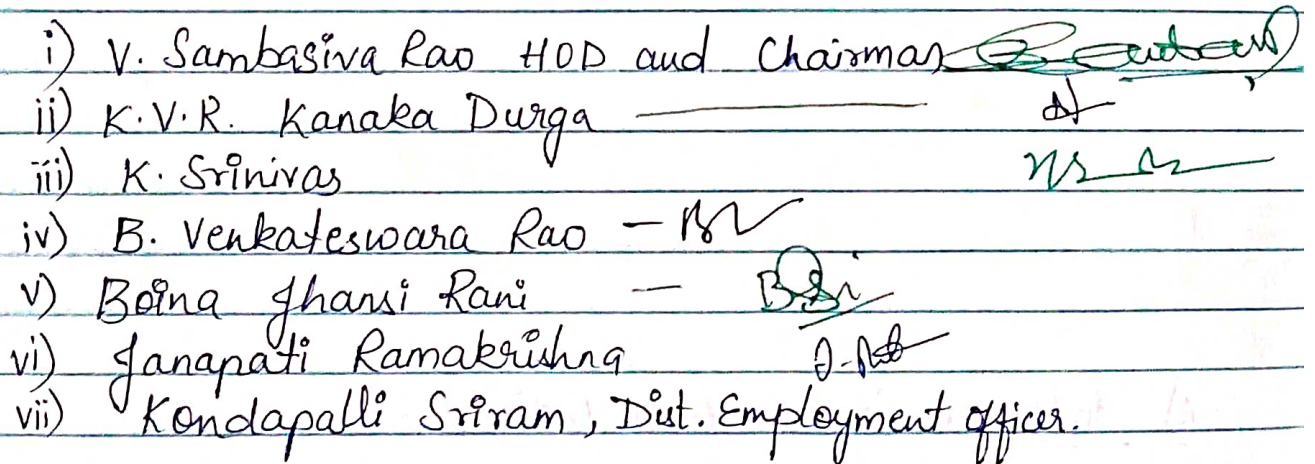 i) V. Sambasiva Rao HOD and Chairman
ii) K.V.R. Kanaka Durga —
iii) K. Srinivas
iv) B. Venkateswara Rao –
v) Boina Jhansi Rani –
vi) Janapati Ramakrishna
vii) Kondapalli Sriram, Dist. Employment officer.